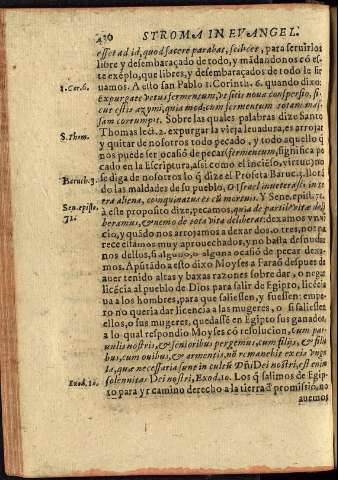 430 STROMA IN EVANGEL.
esset ad id, quod facere parabat, sed hoc, para seruirlos
libre y desembaraçado de todo, y mãdandonos cõ es-
te exẽplo, que libres, y desembaraçados de todo le sir
1. Cor. 6. uamos. A esto san Pablo 1. Corinth. 6. quando dixo:
Expurgate vetus fermentum, vt sitis noua conspersio, si-
cut estis azymi, quia modicum fermentum totam mas-
sam corrumpit. Sobre las quales palabras dize Santo
S. Thom. Thomas lect. 2. expurgar la vieja leuadura, es arrojar
y quitar de nosotros todo pecado, y todo aquello q̃
nos puede ser ocasiõ de pecar, fermentum, significa pe
cado en la Escriptura, assi como el incẽso, virtud; no
Baruch. 3. se diga de nosotros lo q̃ dize el Profeta Baruc. 3. llorã
do las maldades de su pueblo, O Israel inueterasti in ter
Sen. epist. ra aliena, coinquinatus es cũ mortuis. Y Sene. epist. 71.
71. à este proposito dize, pecamos, quia de partib. vitæ deli
beramus, & nemo de tota vita deliberat: dexamos vn vi
cio, y quãdo nos arrojamos a dexar dos, o tres, nos pa
rece estâmos muy aprouechados, y no basta desnudar
nos dellos, si alguno, o alguna ocasiõ de pecar dexa-
mos. Apũtãdo a esto dixo Moyses a Faraõ despues de
auer tenido altas y baxas razones sobre dar, o negar
licẽcia al pueblo de Dios para salir de Egipto, licẽcia
ua a los hombres, para que saliessen, y fuessen: empe-
ro no queria dar licencia a las mugeres, o si saliessen
ellos, o sus mugeres, quedassẽ en Egipto sus ganados,
a lo qual respondio Moyses cõ resolucion, cum par-
uulis nostris, & senioribus pergemus, cum filijs, & filia
bus, cum ouibus, & armentis, nõ remanebit ex eis vngu
la, quæ necessaria sunt in cultũ Dñi Dei nostri, est enim
Exod. 10. solennitas Dei nostri, Exod. 10. Los q̃ salimos de Egip-
to para yr camino derecho a la tierra dˀ promissiõ, no
auemos